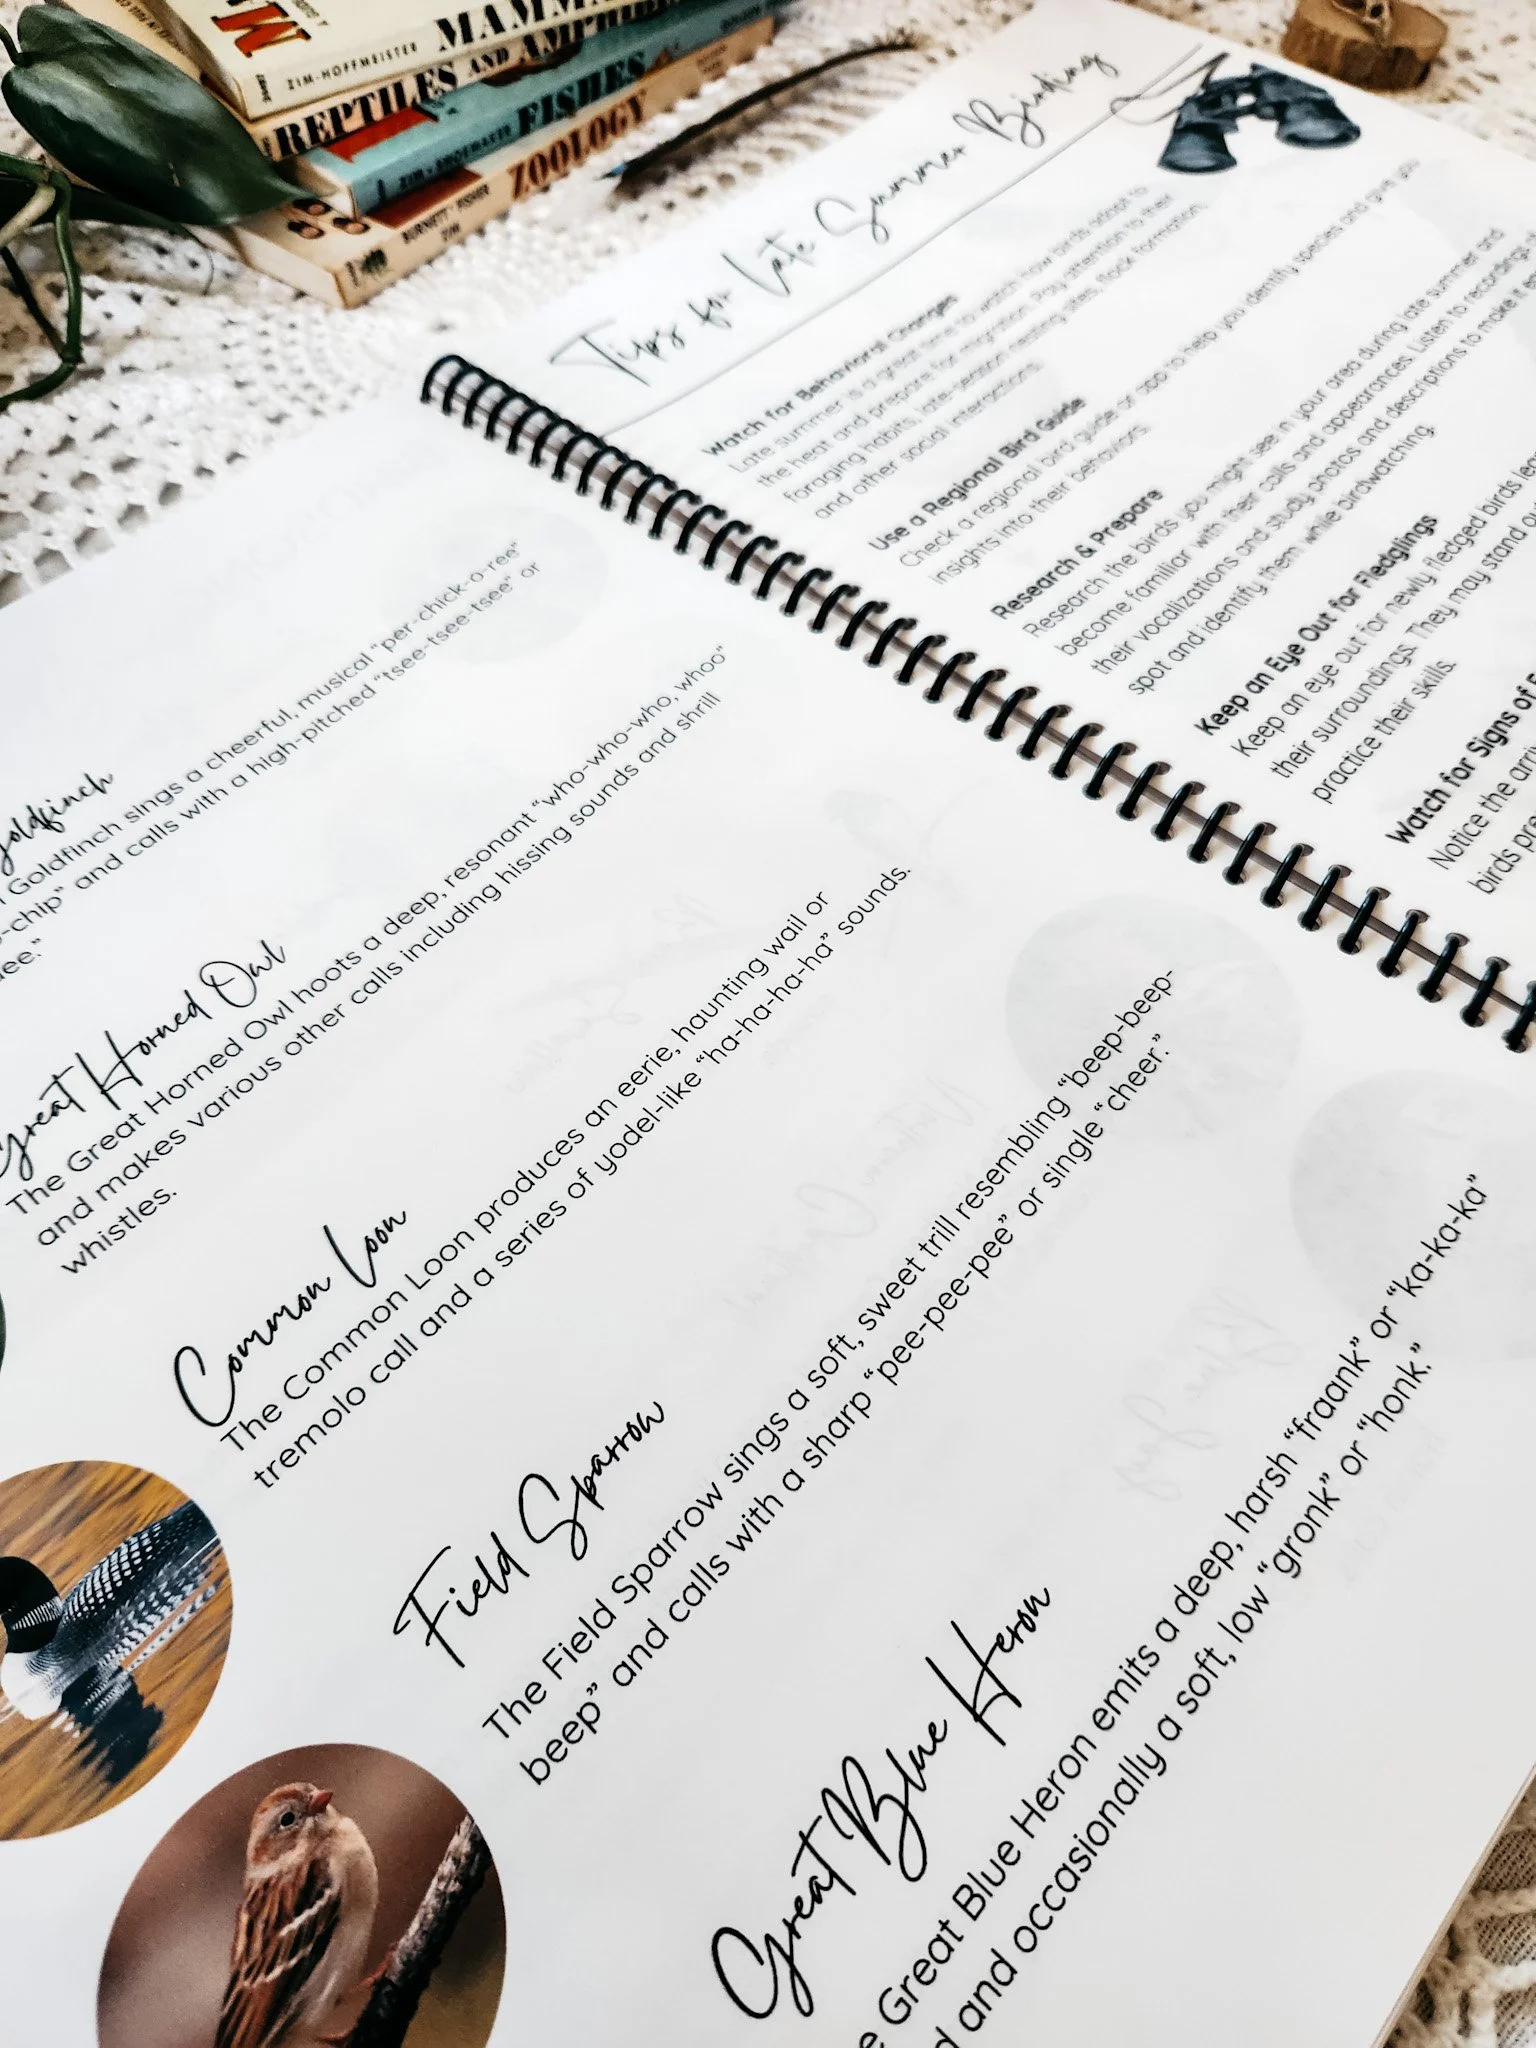 MAMMA
ZIM-HOFFMEISTER
REPTILES AND AMPHIB
FISHES
ZIM-SHOEMAKER
ZOOLOGY
BURNETT FISHER
ZIM
Tips for Late Summer Birding
Watch for Behavioral Changes
Late summer is a great time to watch how birds adapt to
the heat and prepare for migration. Pay attention to their
foraging habits, late-season nesting sites, flock formation,
and other social interactions.
Use a Regional Bird Guide
Check a regional bird guide or app to help you identify species and give you
insights into their behaviors.
Research & Prepare
Research the birds you might see in your area during late summer and
become familiar with their calls and appearances. Listen to recordings
their vocalizations and study photos and descriptions to make it
spot and identify them while birdwatching.
Keep an Eye Out for Fledglings
Keep an eye out for newly fledged birds
their surroundings. They may stand
practice their skills.
Watch for Signs of
Notice the
birds
Goldfinch
Goldfinch sings a cheerful, musical “per-chick-o-ree”
-chip” and calls with a high-pitched “tsee-tsee-tsee” or
Great Horned Owl
The Great Horned Owl hoots a deep, resonant “who-who-who, whoo”
and makes various other calls including hissing sounds and shrill
whistles.
Common Loon
The Common Loon produces an eerie, haunting wail or
tremolo call and a series of yodel-like “ha-ha-ha-ha” sounds.
Field Sparrow
The Field Sparrow sings a soft, sweet trill resembling “beep-beep-
beep” and calls with a sharp “pee-pee-pee” or single “cheer.”
Great Blue Heron
Great Blue Heron emits a deep, harsh “fraank” or “ka-ka-ka”
and occasionally a soft, low “gronk” or “honk.”